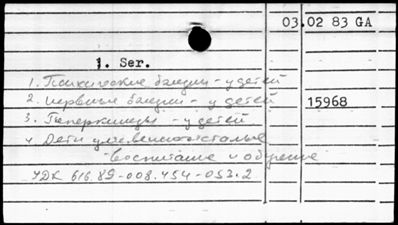 03.02 83 GA
1. Ser.
1. Психические болезни - у детей
2. Нервные болезни - у детей 15968
3. Гиперкинезы - у детей
4 Дети умственно отсталые
- воспитание и обучение
УДК 616.89-008.454-053.2